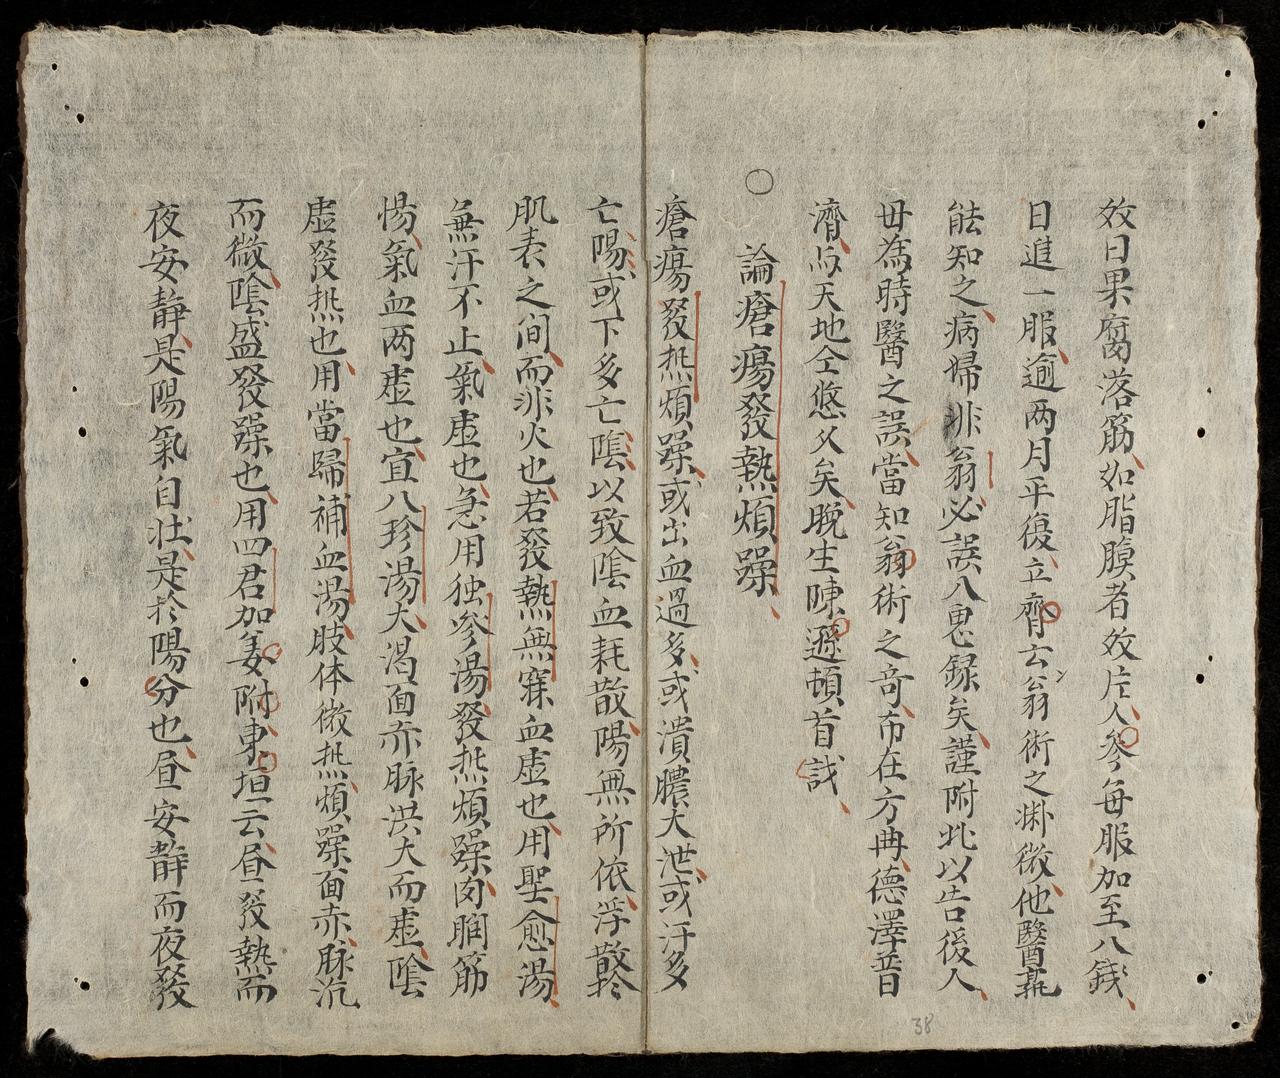 效日果腐落筋如脂膜者效片人參每服加至八錢
日進一服逾两月平復立齊玄翁術之淋微他醫孰
能知之病婦非翁必誤入鬼録矣謹附此以告後人
毋為時醫之誤當知翁術之竒布在方冊德澤普
濟与天地仝悠久矣晚生陳遜頓首誌
○
論瘡瘍發熱煩躁
瘡瘍發热煩躁或出血過多或潰膿大泄或汗多
亡陽或下多亡陰以致陰血耗散陽無所依浮散於
肌表之间而非火也若發熱無寐血虚也用聖愈湯
無汗不止氣虚也急用独參湯發热煩躁肉瞤筋
惕氣血两虚也宜八珍湯大渴面赤脉洪大而虚陰
虚發热也用當歸補血湯肢体微热煩躁面赤脉沉
而微陰盛發躁也用四君加姜附東垣云昼發熱而
夜安静是陽氣自壮是於陽分也昼安静而夜發
38